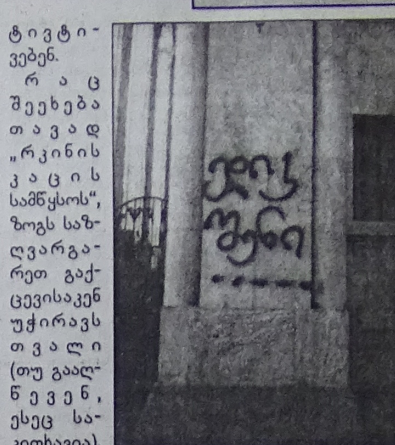 ტივტი-
ვებენ.
რაც
შეეხება
თავად
„რკინის
კაცის
სამწყსოს“,
ზოგს საზ-
ღვარგა-
რეთ გაქ-
ცევისაკენ
უჭირავს
თვალი
(თუ გააღ-
წევენ,
ესეც სა-
კითხავია)
ედიკ
შენი